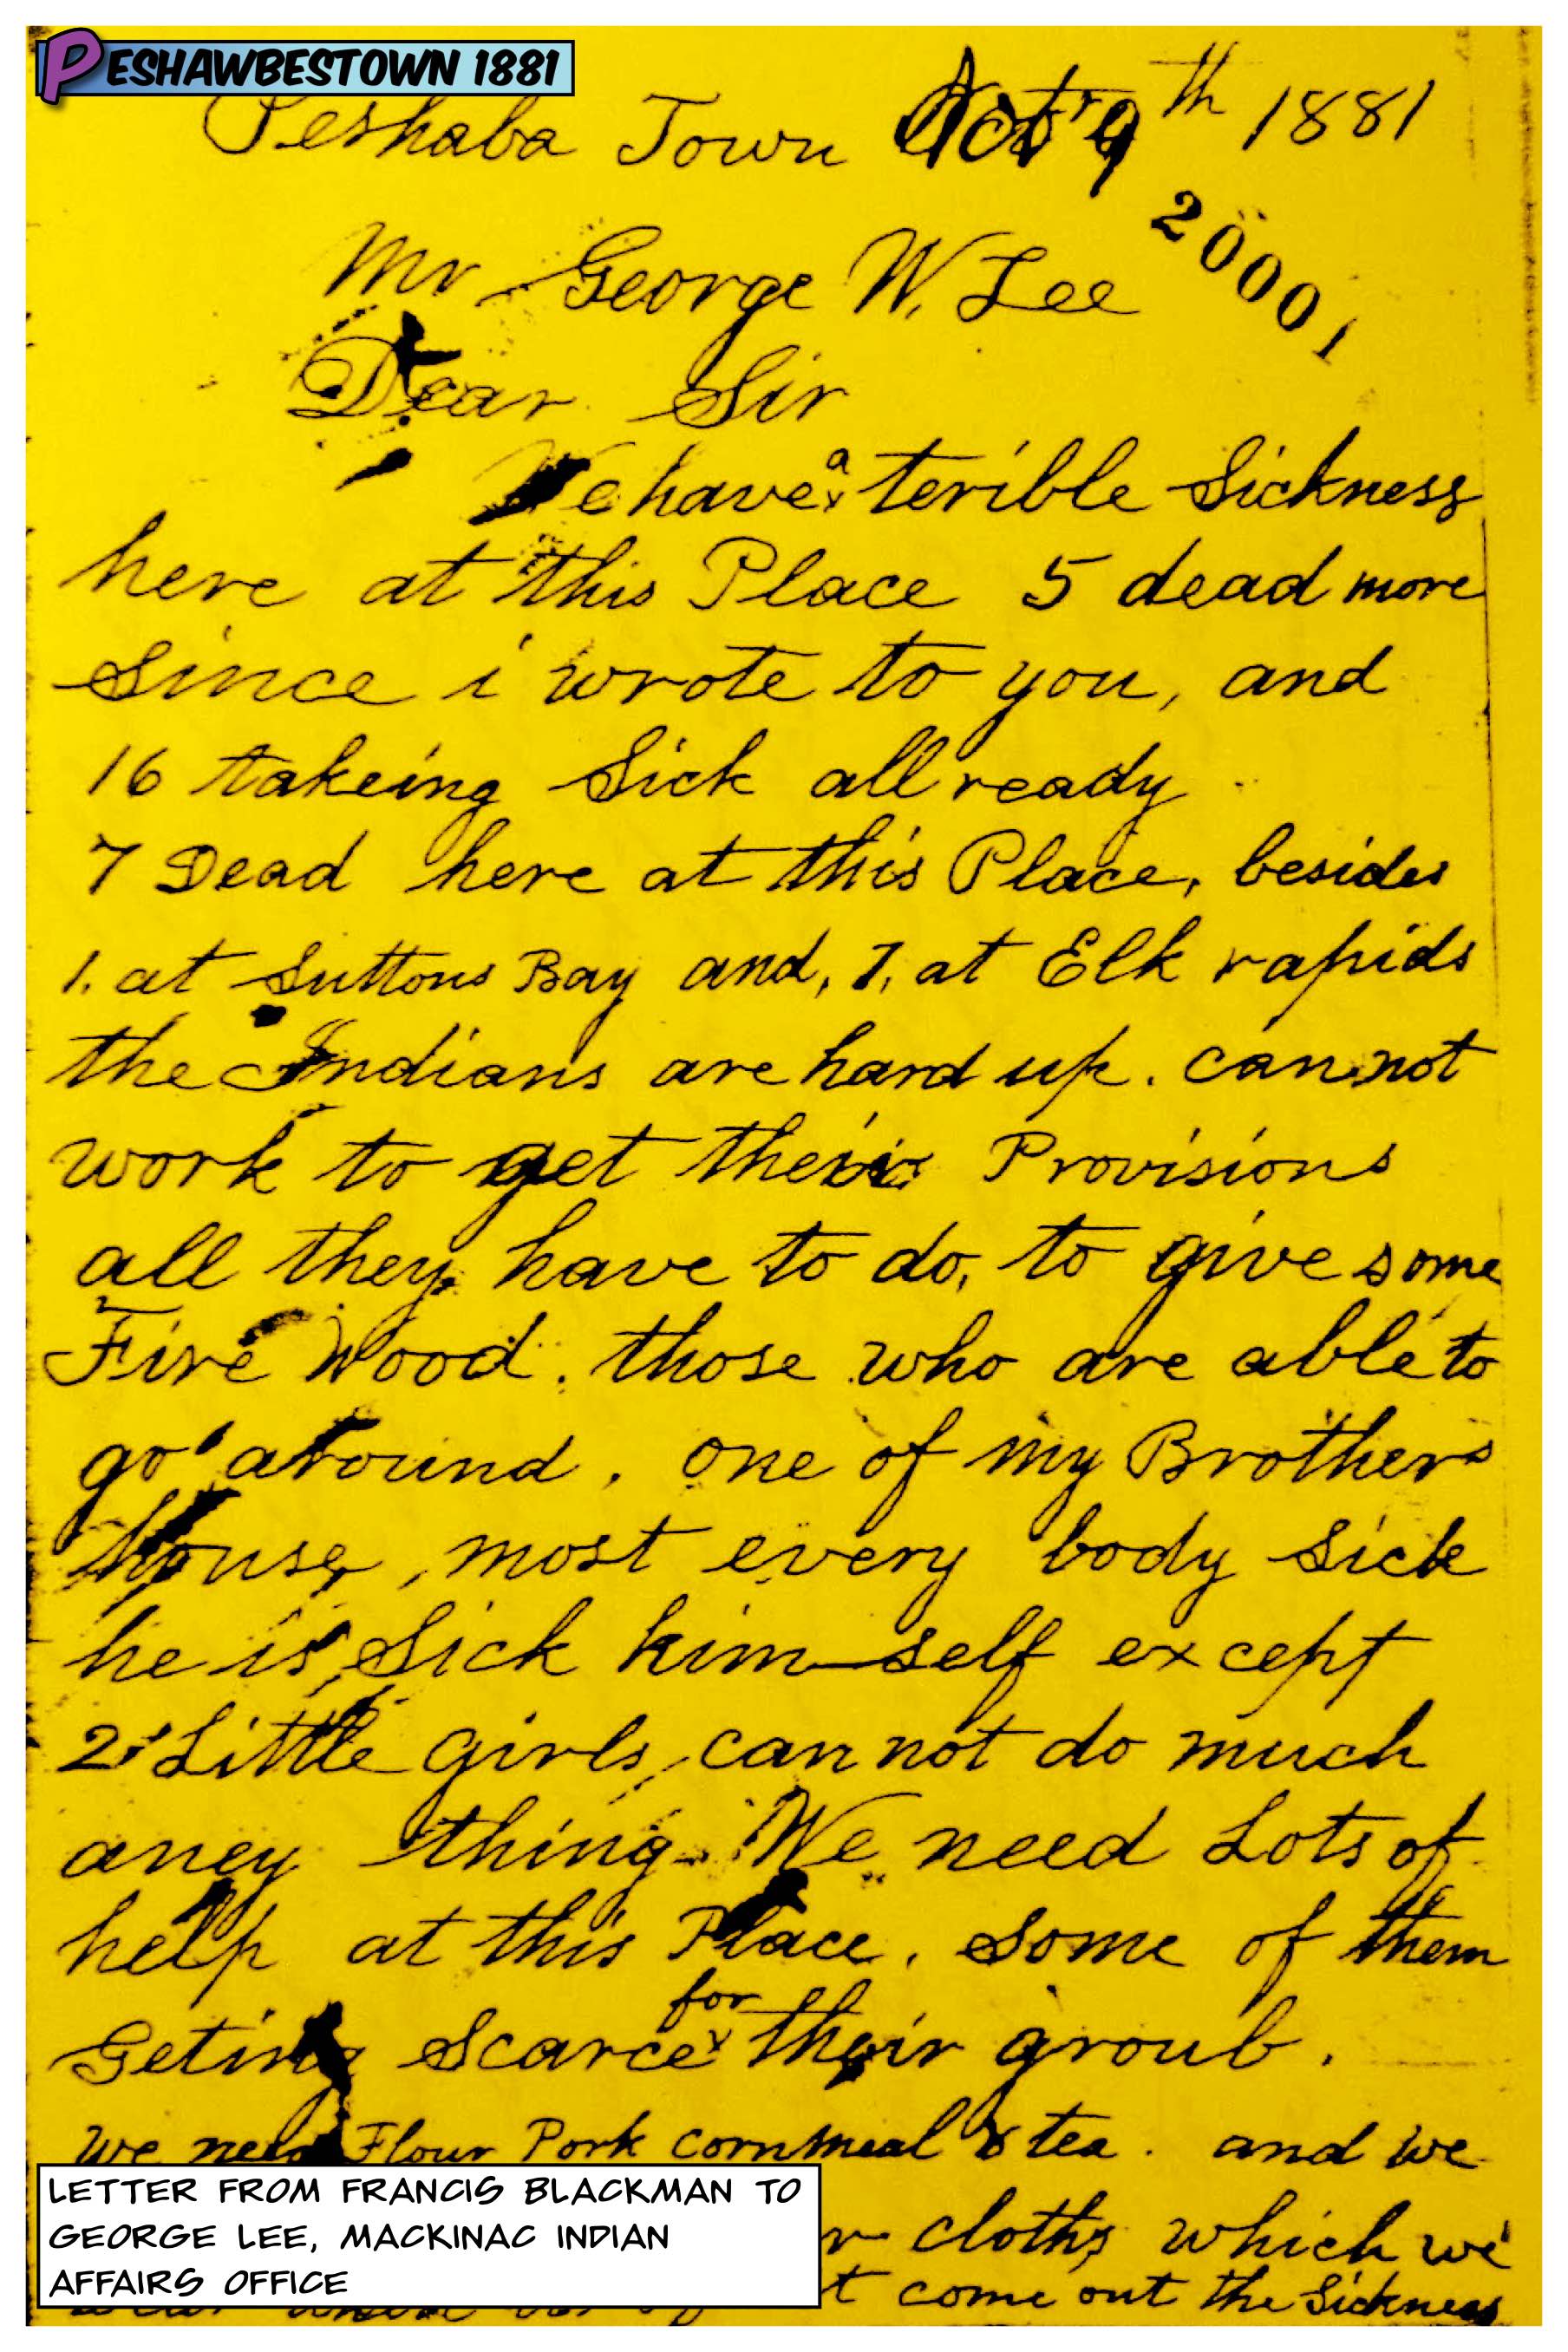 PESHAWBESTOWN 1881
Peshaba Town Oct 9th 1881
20001
Mr George W. Lee
Dear Sir
We have a terible Sickness
here at this Place 5 dead more
Since i wrote to you, and
16 takeing Sick all ready
7 Dead here at this Place, besides
1. at Suttons Bay and, 1, at Elk rapids
the Indians are hard up. can not
work to get their Provisions
all they have to do, to give some
Fire Wood. those who are able to
go around. one of my Brothers
house, most every body Sick
he is Sick him self except
2 Little girls, can not do much
aney thing. We need Lots of
help at this Place. Some of them
Geting Scarce for their groub.
We need Flour Pork cornmeal & tea. and we
cloths which we
come out the Sickness
LETTER FROM FRANCIS BLACKMAN TO
GEORGE LEE, MACKINAC INDIAN
AFFAIRS OFFICE